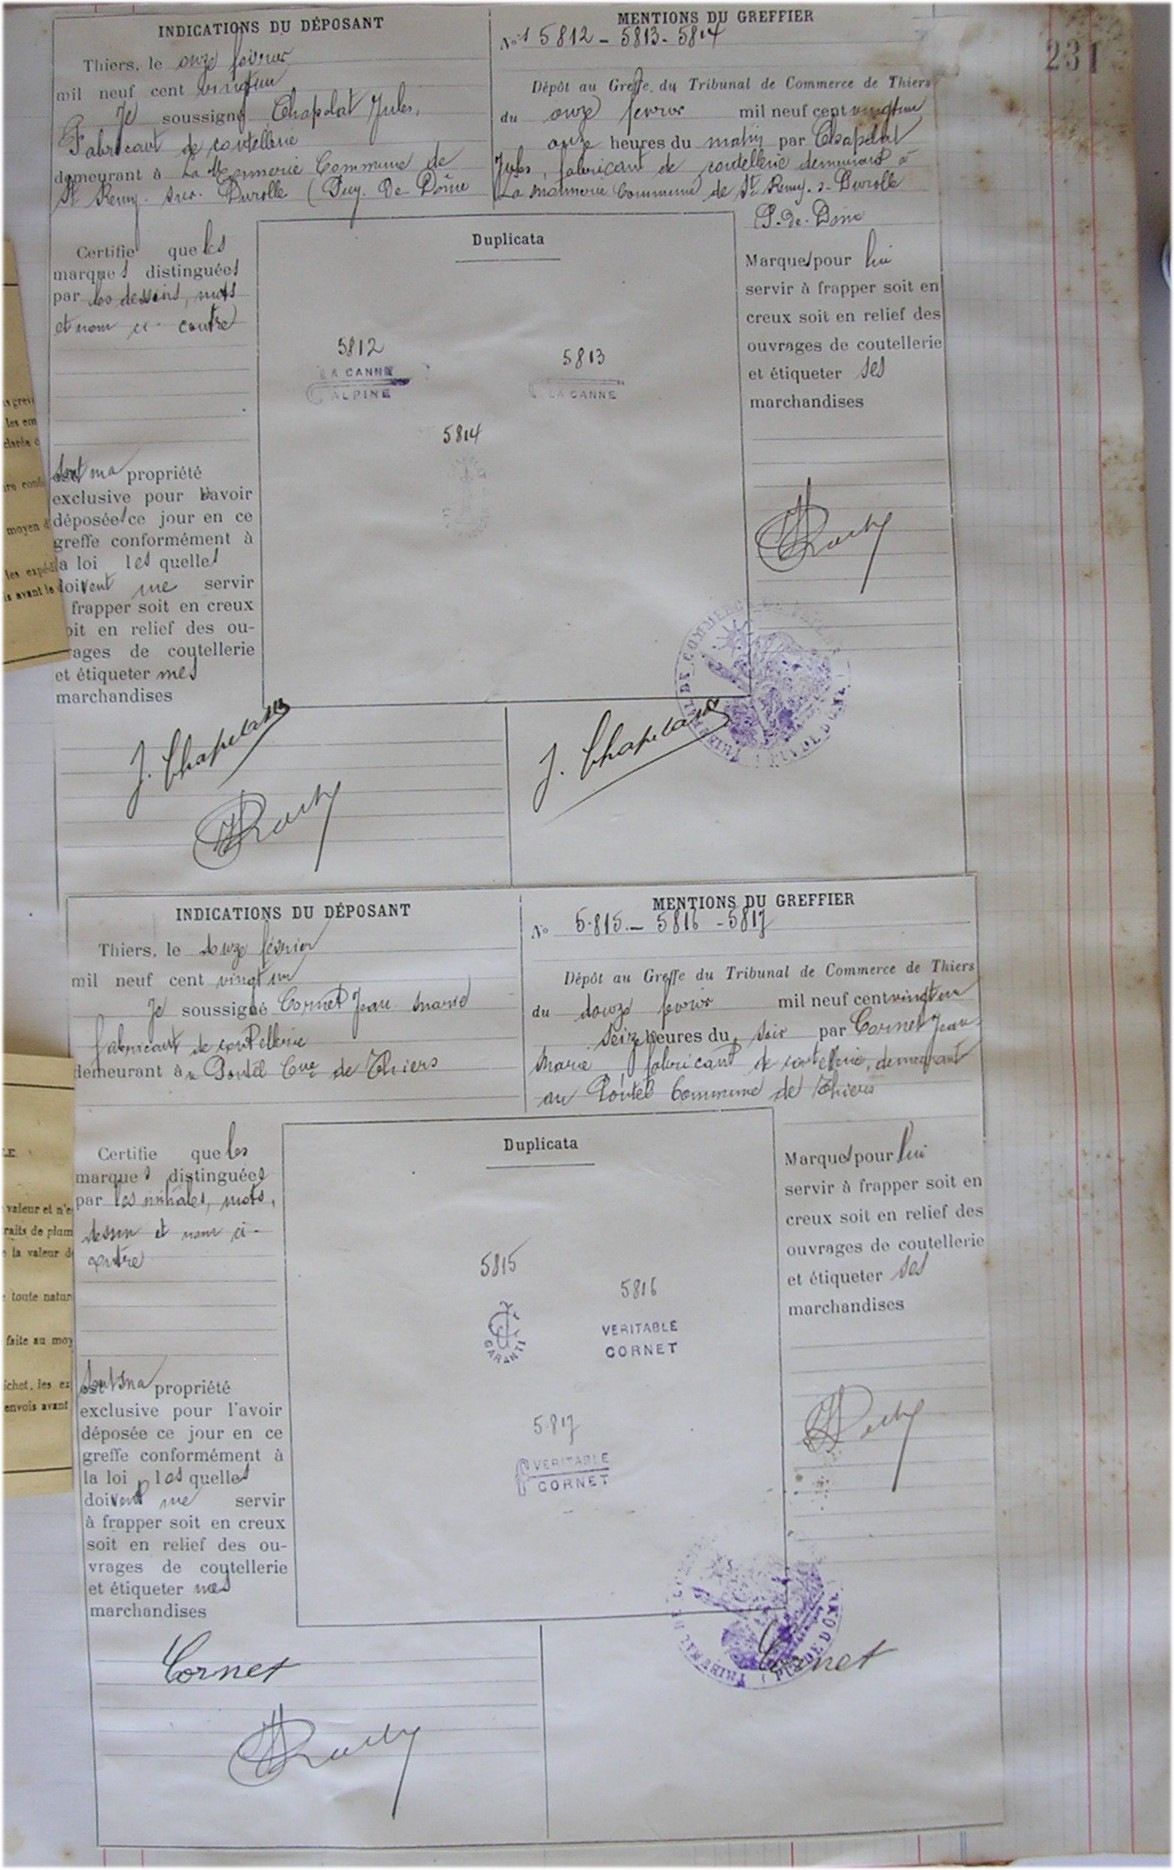 231
INDICATIONS DU DÉPOSANT
Thiers, le onze février
mil neuf cent vingt un
Je soussigné Chapelat Jules,
Fabricant de coutellerie
demeurant à La Monnerie Commune de
St Remy-sur-Durolle (Puy-De-Dôme
MENTIONS DU GREFFIER
Nos 5812 - 5813 - 5814
Dépôt au Greffe du Tribunal de Commerce de Thiers
du onze fevrier mil neuf cent vingt un
onze heures du matin par Chapelat
Jules, fabricant de coutellerie demeurant à
La Monnerie Commune de St Remy-s-Durolle
P-de-Dôme
Certifie que les
marques distinguées
par les dessins, mots
et nom ci-contre
sont ma propriété
exclusive pour l'avoir
déposées ce jour en ce
greffe conformément à
la loi lesquelles
doivent me servir
frapper soit en creux
soit en relief des ou-
vrages de coutellerie
et étiqueter mes
marchandises
Duplicata
5812
LA CANNE
ALPINE
5813
LA CANNE
5814
Marques pour lui
servir à frapper soit en
creux soit en relief des
ouvrages de coutellerie
et étiqueter ses
marchandises
TRIBUNAL DE COMMERCE DE THIERS
(PUY DE DÔME)
J. Chapelat
J. Chapelat
INDICATIONS DU DÉPOSANT
Thiers, le douze février
mil neuf cent vingt un
Je soussigné Cornet Jean-Marie
fabricant de coutellerie
demeurant à Pontel Cne de Thiers
MENTIONS DU GREFFIER
No 5815 - 5816 - 5817
Dépôt au Greffe du Tribunal de Commerce de Thiers
du douze fevrier mil neuf cent vingt un
seize heures du soir par Cornet Jean-
Marie, fabricant de coutellerie, demeurant
au Pontel Commune de Thiers
Certifie que les
marques distinguées
par les initiales, mots,
dessin et nom ci-
contre
sont ma propriété
exclusive pour l'avoir
déposée ce jour en ce
greffe conformément à
la loi lesquelles
doivent me servir
à frapper soit en creux
soit en relief des ou-
vrages de coutellerie
et étiqueter mes
marchandises
Duplicata
5815
JC
GARANTI
5816
VERITABLE
CORNET
5817
VERITABLE
CORNET
Marques pour lui
servir à frapper soit en
creux soit en relief des
ouvrages de coutellerie
et étiqueter ses
marchandises
TRIBUNAL DE CO
(PUY DE DÔME
Cornet
Cornet
valeur et n'e
raits de plum
la valeur d
toute natur
faite au moy
ichet, les ex
envois avant
les em
moyen d
les expédi
s avant le